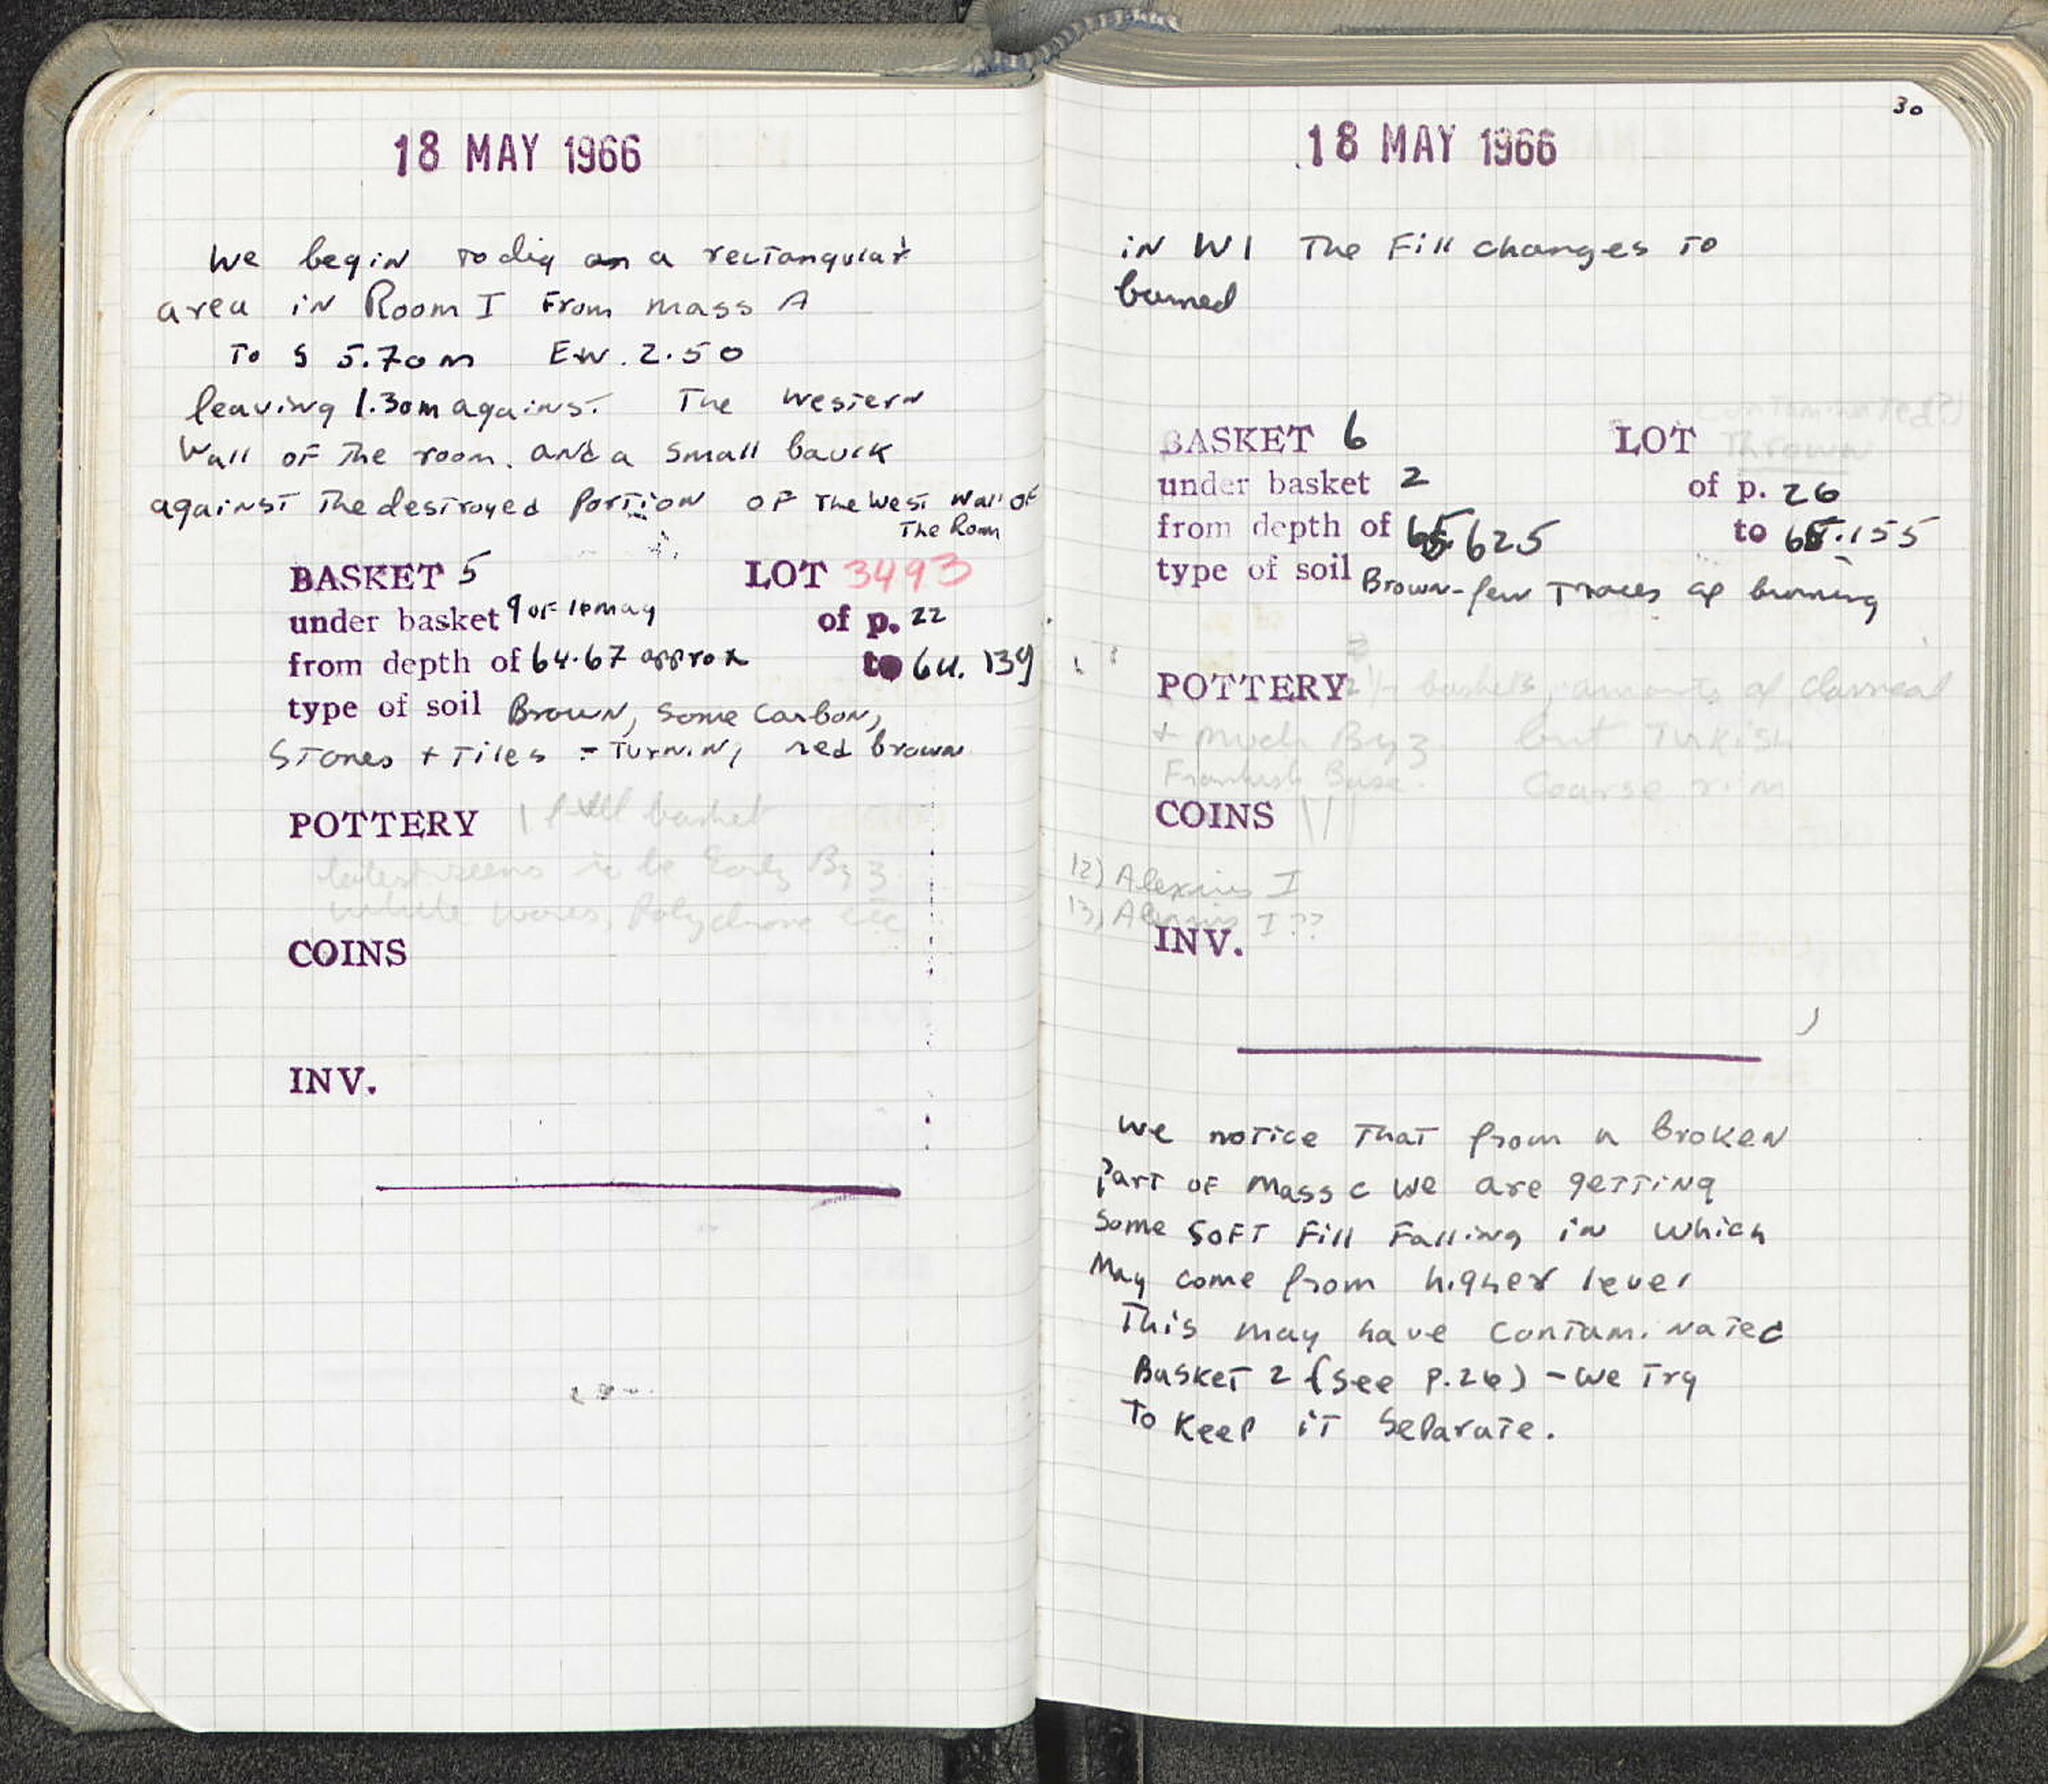 18 MAY 1966
We begin to dig on a rectangular
area in Room I From mass A
To S 5.70m EW. 2.50
leaving 1.30m against The western
Wall of The room. and a small baulk
against The destroyed portion of The West Wall of
The Room
BASKET 5 LOT 3493
under basket 9 of 16 may of p. 22
from depth of 64.67 approx to 64.139
type of soil Brown, some carbon,
Stones + Tiles - Turning red brown
POTTERY 1 full basket
latest seems to be Early Byz
white wares, Polychrome etc
COINS
INV.
30
18 MAY 1966
in W1 The Fill changes To
burned
contaminated(?)
BASKET 6 LOT Thrown
under basket 2 of p. 26
from depth of 65.625 to 65.155
type of soil Brown-few Traces of burning
POTTERY 2 1/2 baskets, amounts of Classical
+ much Byz but Turkish
Frankish Base. Coarse rim
COINS
12) Alexius I
13) Alexius I ??
INV.
We notice That from a broken
Part of mass C we are getting
Some SOFT Fill Falling in which
May come from higher level
This may have contaminated
Basket 2 (see p.26) - we Try
To Keep iT Separate.